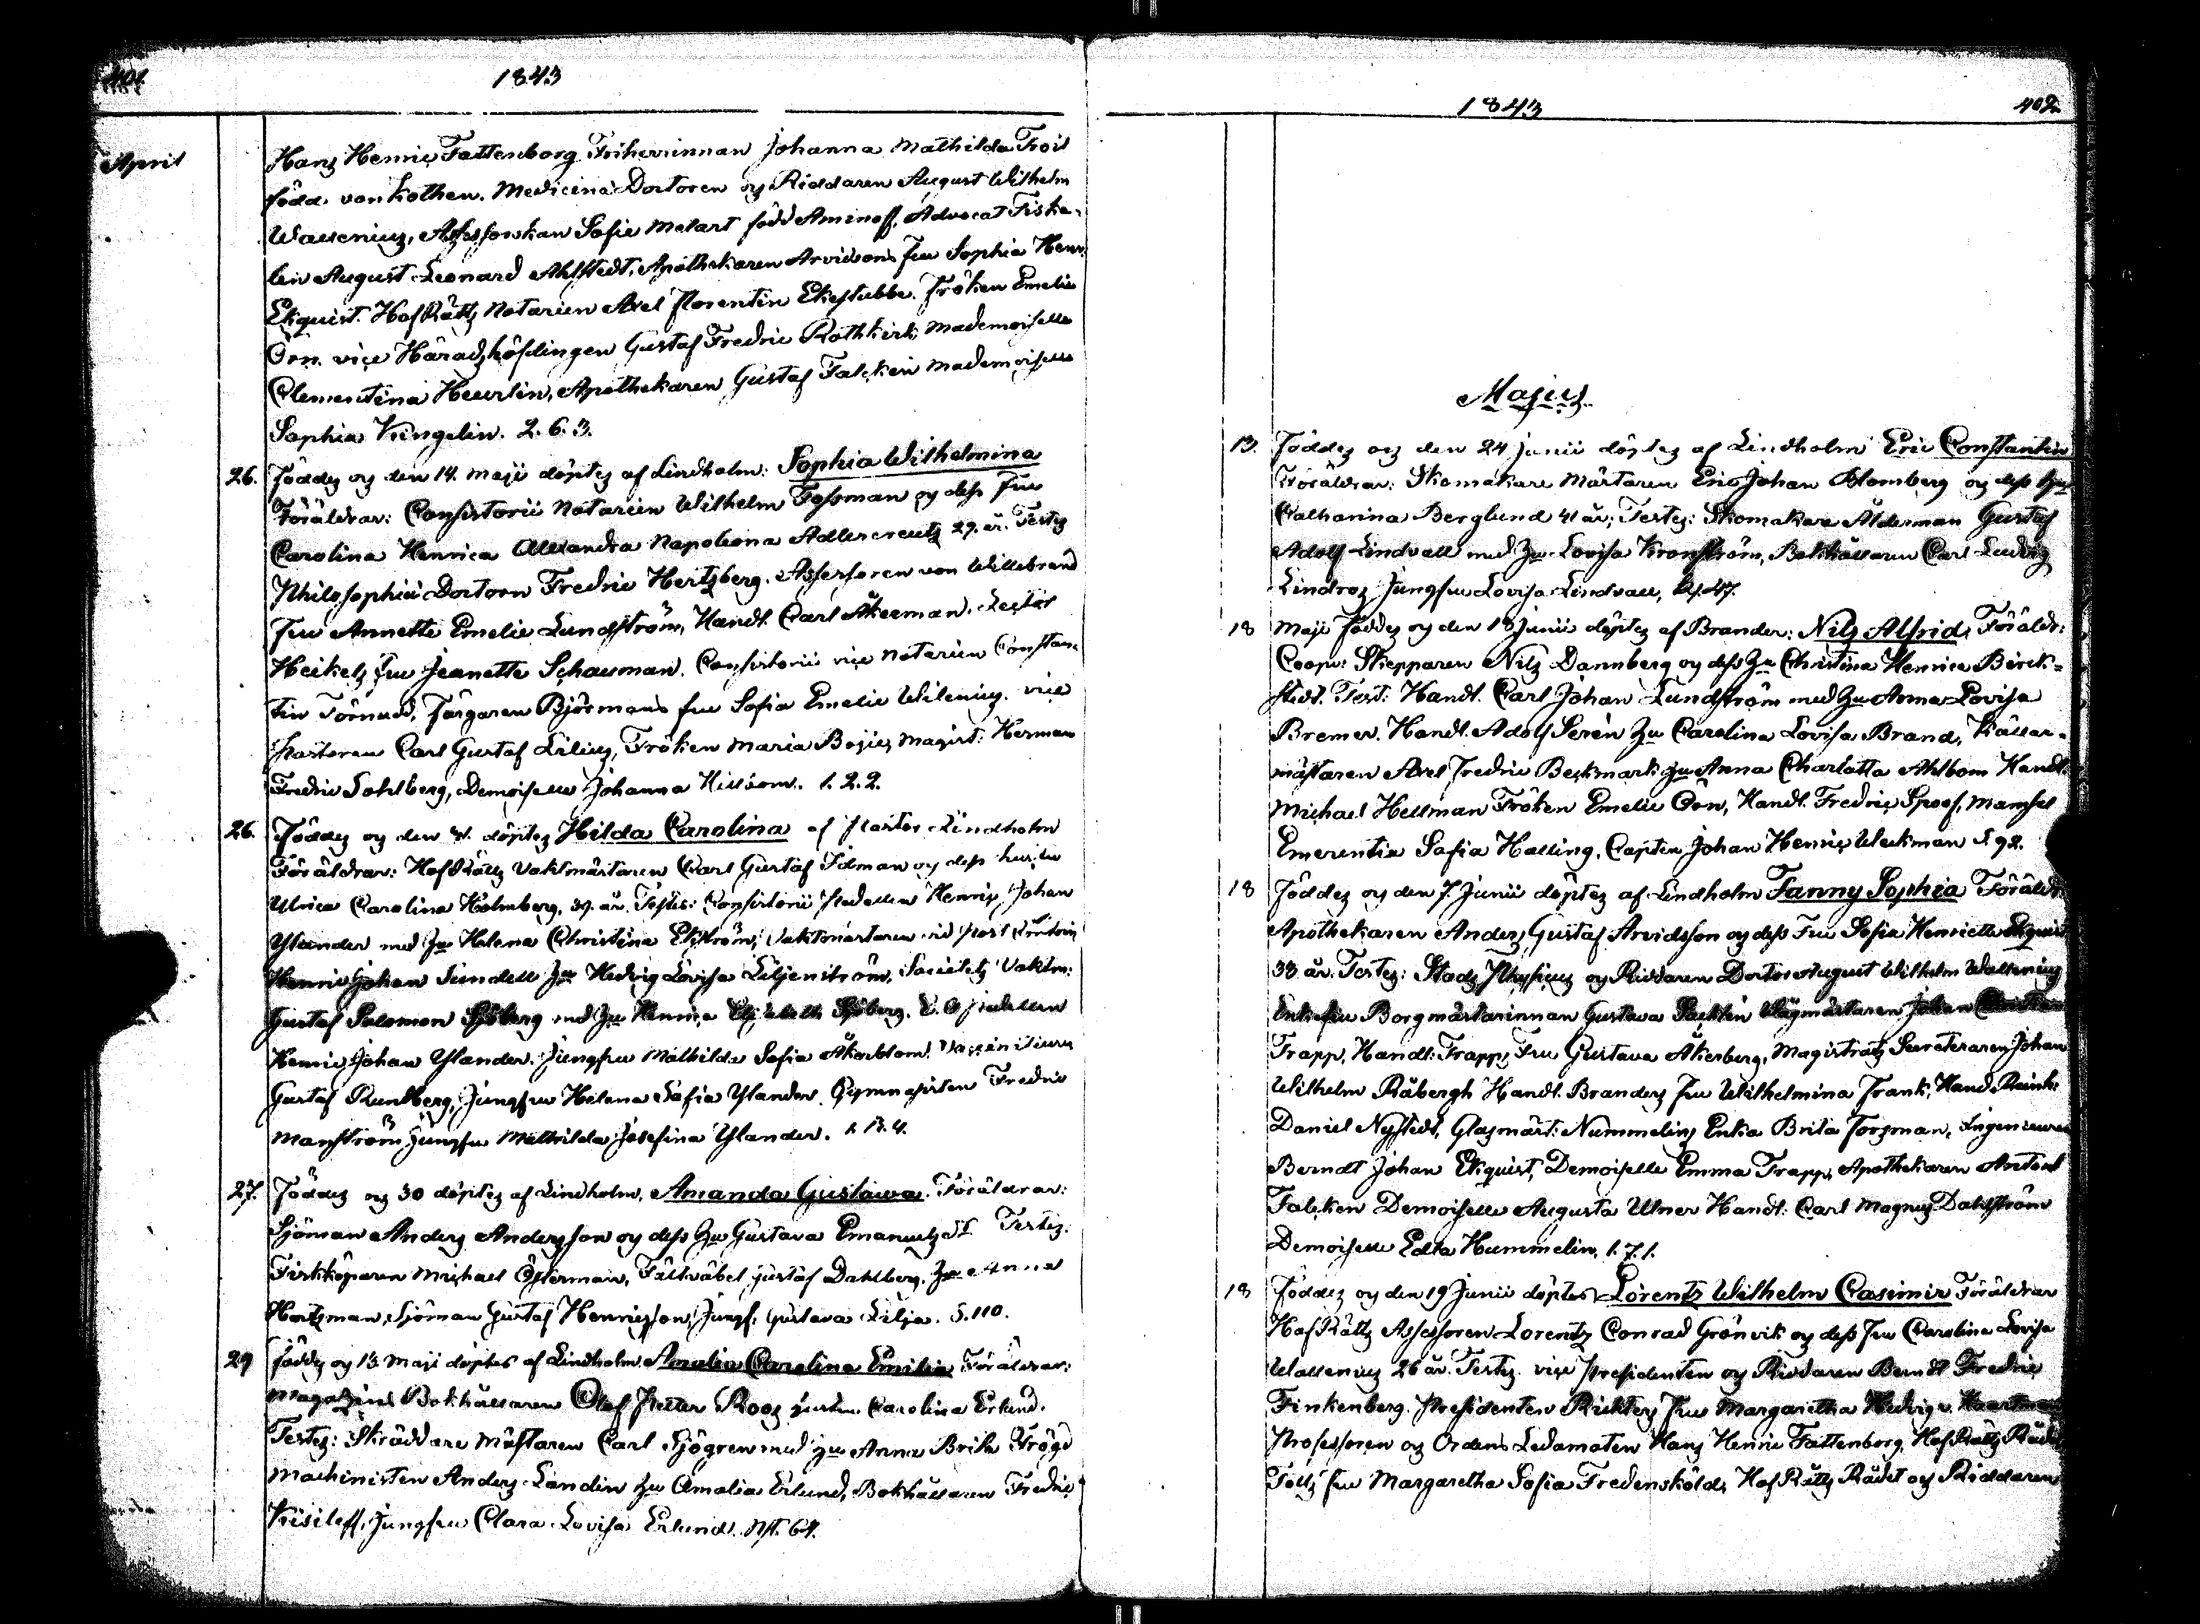 401.
1843
April
Hans Henric Fattenborg Friherrinnan Johanna Mathilda Troil
född von Kothen. Medicinæ Doctoren og Riddaren August Wilhelm
Wallenius, Assessorskan Sofie Melart född Aminoff, Advocat Fiska-
len August Leonard Ahlstedt, Apothekaren Arvidsons fru Sophia Henr.
Ekquist. HofRätts Notarien Axel Florentin Ekestubbe. Fröken Emelie
Örn. vice Häradshöfdingen Gustaf Fredric Rothkirk, Mademoiselle
Clementina Heurlin, Apothekaren Gustaf Falcken Mademoiselle
Sophia Kingelin. 2. 6. 3.
26. Föddes og den 14. Maji döptes af Lindholm: Sophia Wilhelmina
Föräldrar: Consistorii Notarien Wilhelm Forssman og dess Fru
Carolina Henrica Alexandra Napoleona Adlercreutz 29. år. Testes
Philosophiæ Doctorn Fredric Hertzberg. Assessoren von Willebrand
fru Annette Emelie Lundström, Handl. Carl Åkerman. Lector
Heikels Fru Jeanette Schauman. Consistorii vice Notarien Constan-
tin Törnudd, Färgaren Björmans fru Sofia Emelie Wilenius. vice
Pastoren Carl Gustaf Lilius, Fröken Maria Bojie, Magist: Herman
Fredric Sohlberg, Demoiselle Johanna Hillsom. 1. 2. 2.
26. Föddes og den döptes Hilda Carolina af Pastor Lindholm
Föräldrar: HofRätts Vaktmästaren Carl Gustaf Idman og dess hustru
Ulrica Carolina Holmberg, 39. år. Testes: Consistorii Pedellen Henric Johan
Ylander med hu Helena Christina Ekström, Vaktmästaren vid Post Contoir
Henric Johan Sundell hu Hedvig Lovisa Liljenström, Societets Vaktm:
Gustaf Salomon Sjöberg med hu Henrica Elisabeth Sjöberg. Pedellen
Henric Johan Ylander. Jungfru Mathilda Sofia Åkerblom.
Gustaf Rundberg, Jungfru Helena Sofia Ylander. Gymnasisten Fredric
Manström Jungfru Mathilda Josefina Ylander. 1. 13. 4.
27. Föddes og 30 döptes af Lindholm, Amanda Gustawa. Föräldrar:
Sjöman Anders Andersson og dess hu Gustava Emanuelsd: Testes:
Fiskköparen Michael Österman, Fältväbel Gustaf Dahlberg, hu Anna
Hartzman, Sjöman Gustaf Henricsson, Jungf. Gustava Lilja. S. 110.
29 föddes og 13 Maji döptes af Lindholm Amalia Carolina Emilia Föräldrar:
Magazins Bokhållaren Olof Petter Roos hustru Carolina Erlund.
Testes: Skräddare Mästaren Carl Sjögren med hu Anna Brita Frögd
Machinisten Anders Landin hu Amalia Erlund, Bokhållaren Fredric
Kiseleff, Jungfru Clara Lovisa Erlund. Nst. 64.
1843
402.
Majus
13. Föddes og den 24 Junii döptes af Lindholm Eric Constantin
Föräldrar: Skomakare Mästaren Eric Johan Blomberg og dess hu
Catharina Berglund 41 år; Testes: Skomakare Ålderman Gustaf
Adolf Lindvall med hu Lovisa Kronström, Bokhållaren Carl Ludvig
Lindros Jungfru Lovisa Lindvall, 47.
18 Maji föddes og den 18 Junii döptes af Brander: Nils Alfrid, Föräldr:
Coopv: Skepparen Nils Dannberg og dess hu Christina Henrica Birck-
stedt. Test: Handl. Carl Johan Lundström med hu Anna Lovisa
Bremer. Handl. Adolf Serén hu Carolina Lovisa Brand, Källar-
mästaren Axel Fredric Beckmark hu Anna Charlotta Ahlbom Handl.
Michael Hellman Fröken Emelie Örn, Handl. Fredric Spoof, Mamsel
Emerentia Sofia Halling. Capten Johan Henric Weckman S. 92.
18 Föddes og den 7. Junii döptes af Lindholm Fanny Sophia Föräldr
Apothekaren Anders Gustaf Arvidsson og dess Fru Sofia Henrietta Ekquist
33 år. Testes: Stads Physicus og Riddaren Doctor August Wilhelm Wallenius
Enkefru Borgmästarinnan Gustava Sacklin Vågmästaren Johan Christian
Trapp, Handl: Trapps Fru Gustava Åkerberg, Magistrats Secreteraren Johan
Wilhelm Råbergh Handl. Branders fru Wilhelmina Frank, Hand. Reink:
Daniel Nystedt, Glasmäst: Nummelins Enka Brita Forsman, Ingenieuren
Berndt Johan Ekquist, Demoiselle Emma Trapp, Apothekaren Anton
Falcken Demoiselle Augusta Ulner Handl: Carl Magnus Dahlström
Demoiselle Edla Hummelin, 1. 7. 1.
18 Föddes og den 19 Junii döptes Lorentz Wilhelm Casimir Föräldrar
HofRätts Assessoren Lorentz Conrad Grönvik og dess Fru Carolina Lovisa
Wallenius 26 år. Testes vice Presidenten og Riddaren Berndt Fredric
Finkenberg. Presidenten Richters fru Margaretha Hedvig v. Haartman
Professoren og Ordens Ledamoten Hans Henric Fattenborg, HofRätts Rådet
Tolls fru Margaretha Sofia Fredensköld, HofRätts Rådet og Riddaren